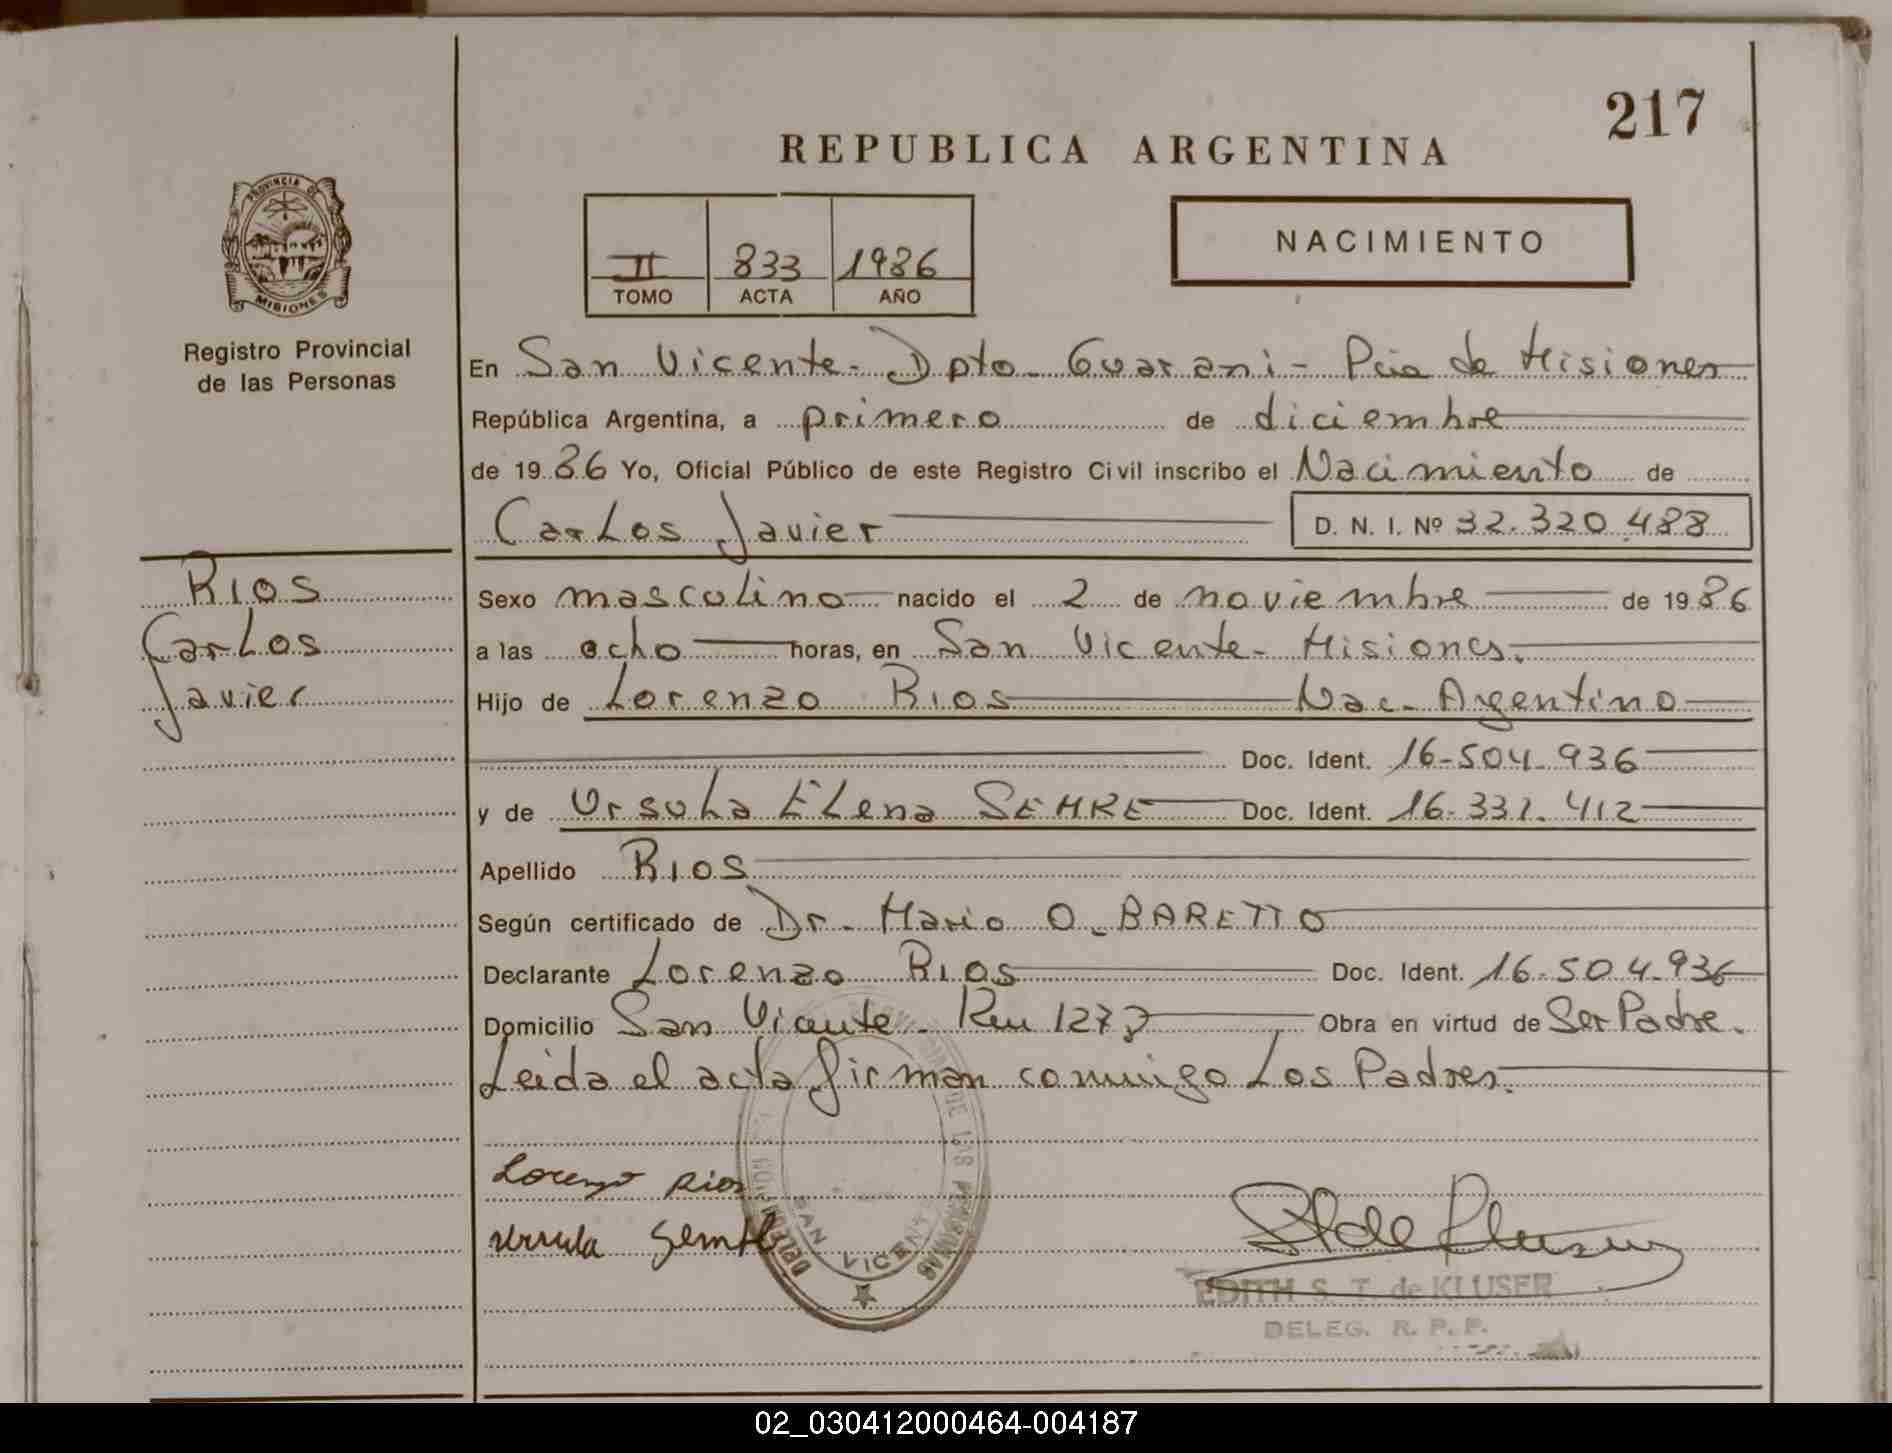 217
REPUBLICA ARGENTINA
PROVINCIA DE
MISIONES
Registro Provincial
de las Personas
II 833 1986
TOMO ACTA AÑO
NACIMIENTO
En San Vicente - Dpto. Guarani - Pcia de Misiones
República Argentina, a primero de diciembre
de 1986 Yo, Oficial Público de este Registro Civil inscribo el Nacimiento de
Carlos Javier D. N. I. Nº 32.320.488
RIOS
Carlos
Javier
Sexo masculino nacido el 2 de noviembre de 1986
a las ocho horas, en San Vicente - Misiones.
Hijo de Lorenzo RIOS Nac. Argentino
Doc. Ident. 16-504-936
y de Ursula Elena SEMKE Doc. Ident. 16.331.412
Apellido RIOS
Según certificado de Dr. Mario O. BARETTO
Declarante Lorenzo RIOS Doc. Ident. 16-504-936
Domicilio San Vicente - Km 1277 Obra en virtud de Ser Padre.
Leida el acta firman conmigo Los Padres.
Lorenzo Rios
Ursula
DE LAS PERSONAS
SAN VICENTE
EDITH S. T. de KLUSER
DELEG. R. P. P.
02_030412000464-004187